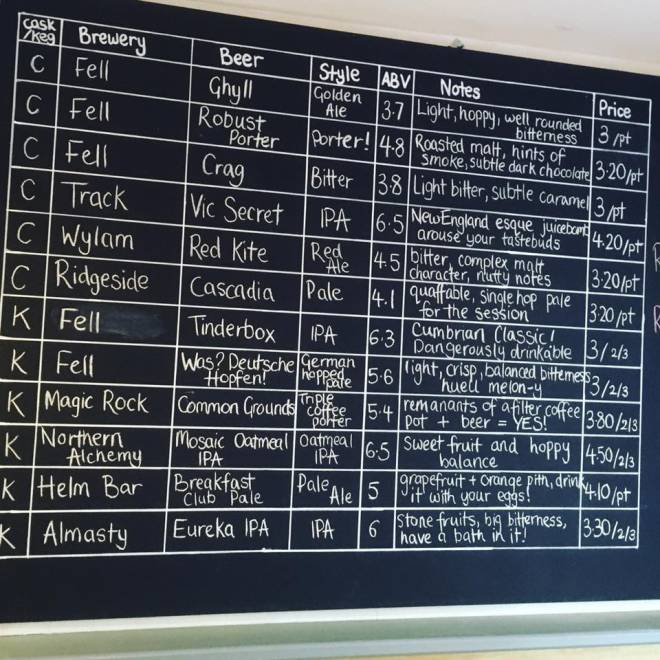 cask/keg Brewery Beer Style ABV Notes Price
C Fell Ghyll Golden Ale 3.7 Light, hoppy, well rounded bitterness 3/pt
C Fell Robust Porter Porter! 4.8 Roasted malt, hints of smoke, subtle dark chocolate 3.20/pt
C Fell Crag Bitter 3.8 Light bitter, subtle caramel 3/pt
C Track Vic Secret IPA 6.5 New England esque juicebomb arouse your tastebuds 4.20/pt
C Wylam Red Kite Red Ale 4.5 bitter, complex malt character, nutty notes 3.20/pt
C Ridgeside Cascadia Pale 4.1 quaffable, single hop pale for the session 3.20/pt
K Fell Tinderbox IPA 6.3 Cumbrian Classic! Dangerously drinkable 3/2/3
K Fell Was? Deutsche Hopfen! German hopped pale 5.6 light, crisp, balanced bitterness huell melon-y 3/2/3
K Magic Rock Common Grounds Triple coffee porter 5.4 remanants of a filter coffee pot + beer = YES! 3.80/2/3
K Northern Alchemy Mosaic Oatmeal IPA Oatmeal IPA 6.5 Sweet fruit and hoppy balance 4.50/2/3
K Helm Bar Breakfast Club Pale Pale Ale 5 grapefruit + orange pith, drink it with your eggs! 4.10/pt
K Almasty Eureka IPA IPA 6 Stone fruits, big bitterness, have a bath in it! 3.30/2/3